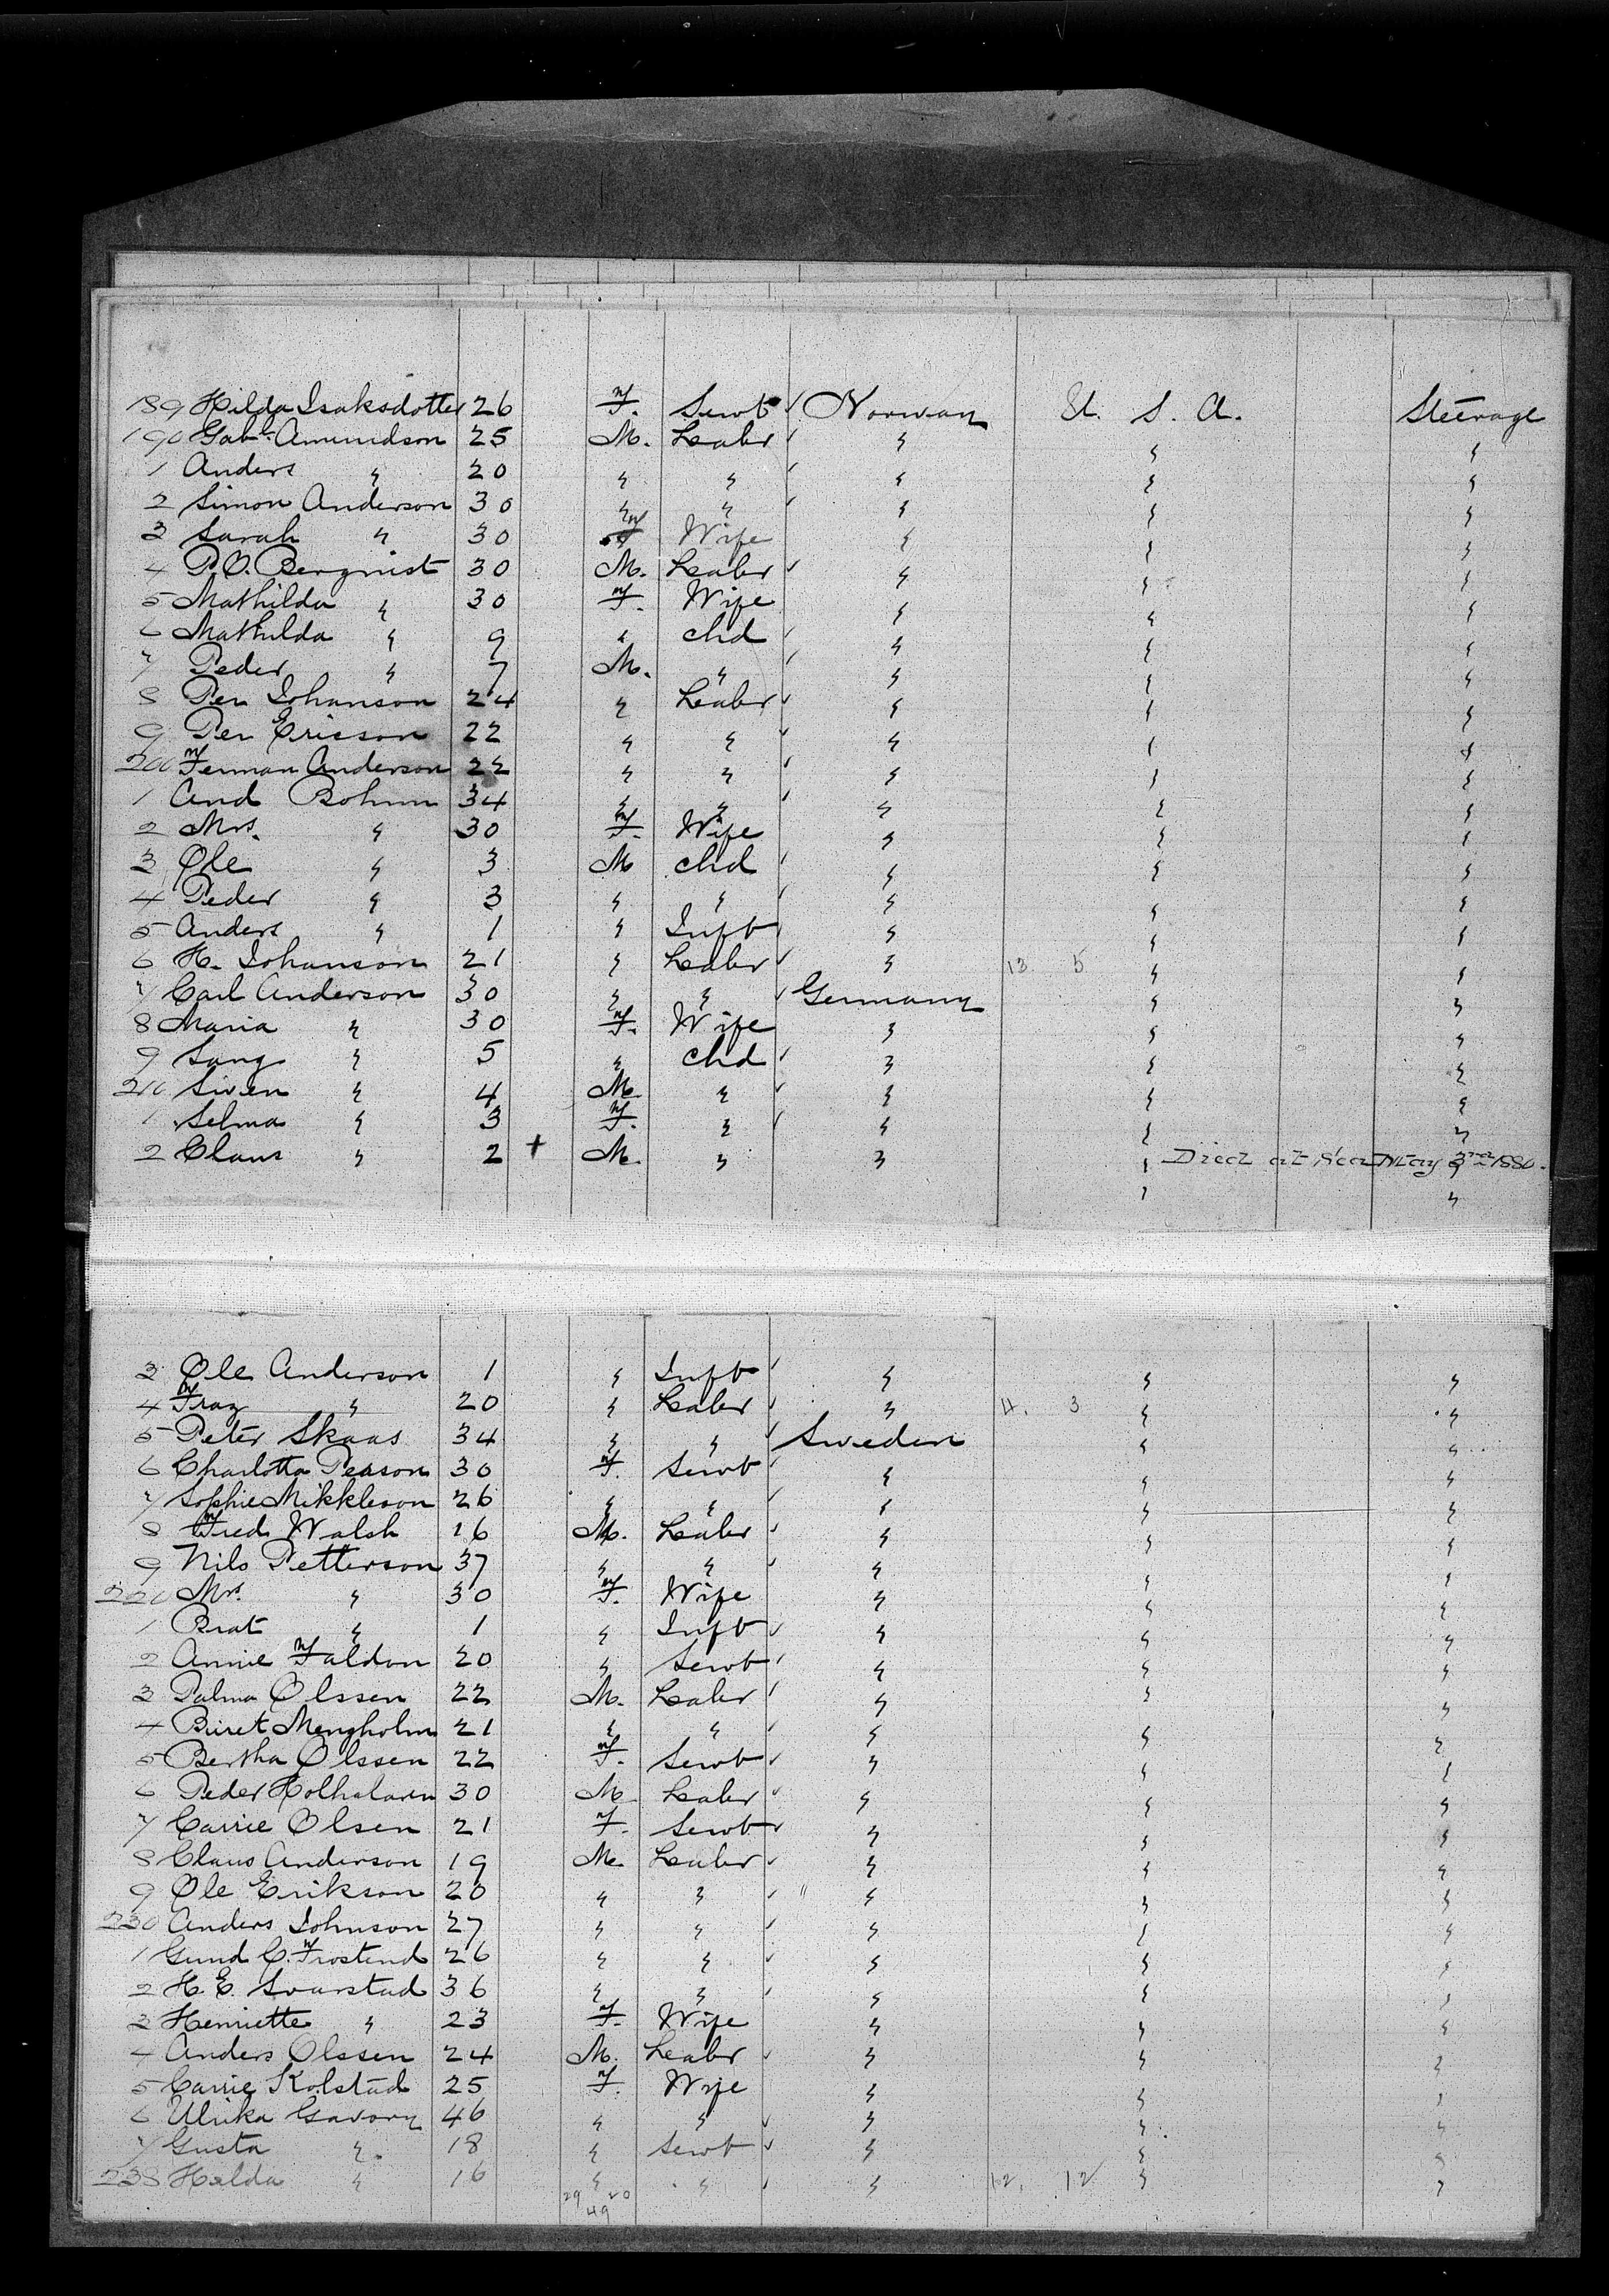 189 Hilda Isaksdotter 26 F. Servt Norway U. S. A. Steerage
190 Gabl. Amundson 25 M. Labr " " "
1 Anders " 20 " " " " "
2 Simon Anderson 30 " " " " "
3 Sarah " 30 F Wife " " "
4 P.O. Bergnist 30 M. Labr " " "
5 Mathilda " 30 F. Wife " " "
6 Mathilda " 9 " chd " " "
7 Peder " 7 M. " " " "
8 Per Johanson 24 " Labr " " "
9 Per Ericson 22 " " " " "
200 Ferman Anderson 22 " " " " "
1 And Bohm 34 " " " " "
2 Mrs. " 30 F. Wife " " "
3 Ole " 3 M chd " " "
4 Peder " 3 " " " " "
5 Anders " 1 " Inft " " "
6 H. Johanson 21 " Labr " 13 5 " "
7 Carl Anderson 30 " " Germany " "
8 Maria " 30 F. Wife " " "
9 Sang " 5 " chd " " "
210 Swen " 4 M " " " "
1 Selma " 3 F. " " " "
2 Claus " 2 + M. " " " Died at Sea May 3rd 1880.
" "
3 Ole Anderson 1 " Inft " " "
4 Fraz " 20 " Labr " 4. 3 " "
5 Peter Skaas 34 " " Sweden " "
6 Charlotta Peason 30 F. Servt " " "
7 Sophie Mikkleson 26 " " " " "
8 Fred Walsh 16 M. Labr " " "
9 Nils Petterson 37 " " " " "
220 Mrs. " 30 F. Wife " " "
1 Brat " 1 " Inft " " "
2 Annie Faldon 20 " Servt " " "
3 Palma Olssen 22 M. Labr " " "
4 Biret Mengholm 21 " " " " "
5 Bertha Olssen 22 F. Servt " " "
6 Peder Holhalaren 30 M Labr " " "
7 Carrie Olsen 21 F. Servt " " "
8 Claus Anderson 19 M. Labr " " "
9 Ole Erikson 20 " " " " "
230 Anders Johnson 27 " " " " "
1 Gund C. Frostend 26 " " " " "
2 H. E. Svarstad 36 " " " " "
3 Henriette " 23 F. Wife " " "
4 Anders Olssen 24 M. Labr " " "
5 Carrie Kolstad 25 F. Wife " " "
6 Ulrika Gavory 46 " " " " "
7 Gusta " 18 " Servt " " "
238 Halda " 16 " " " 12. 12 " "
29 20
49